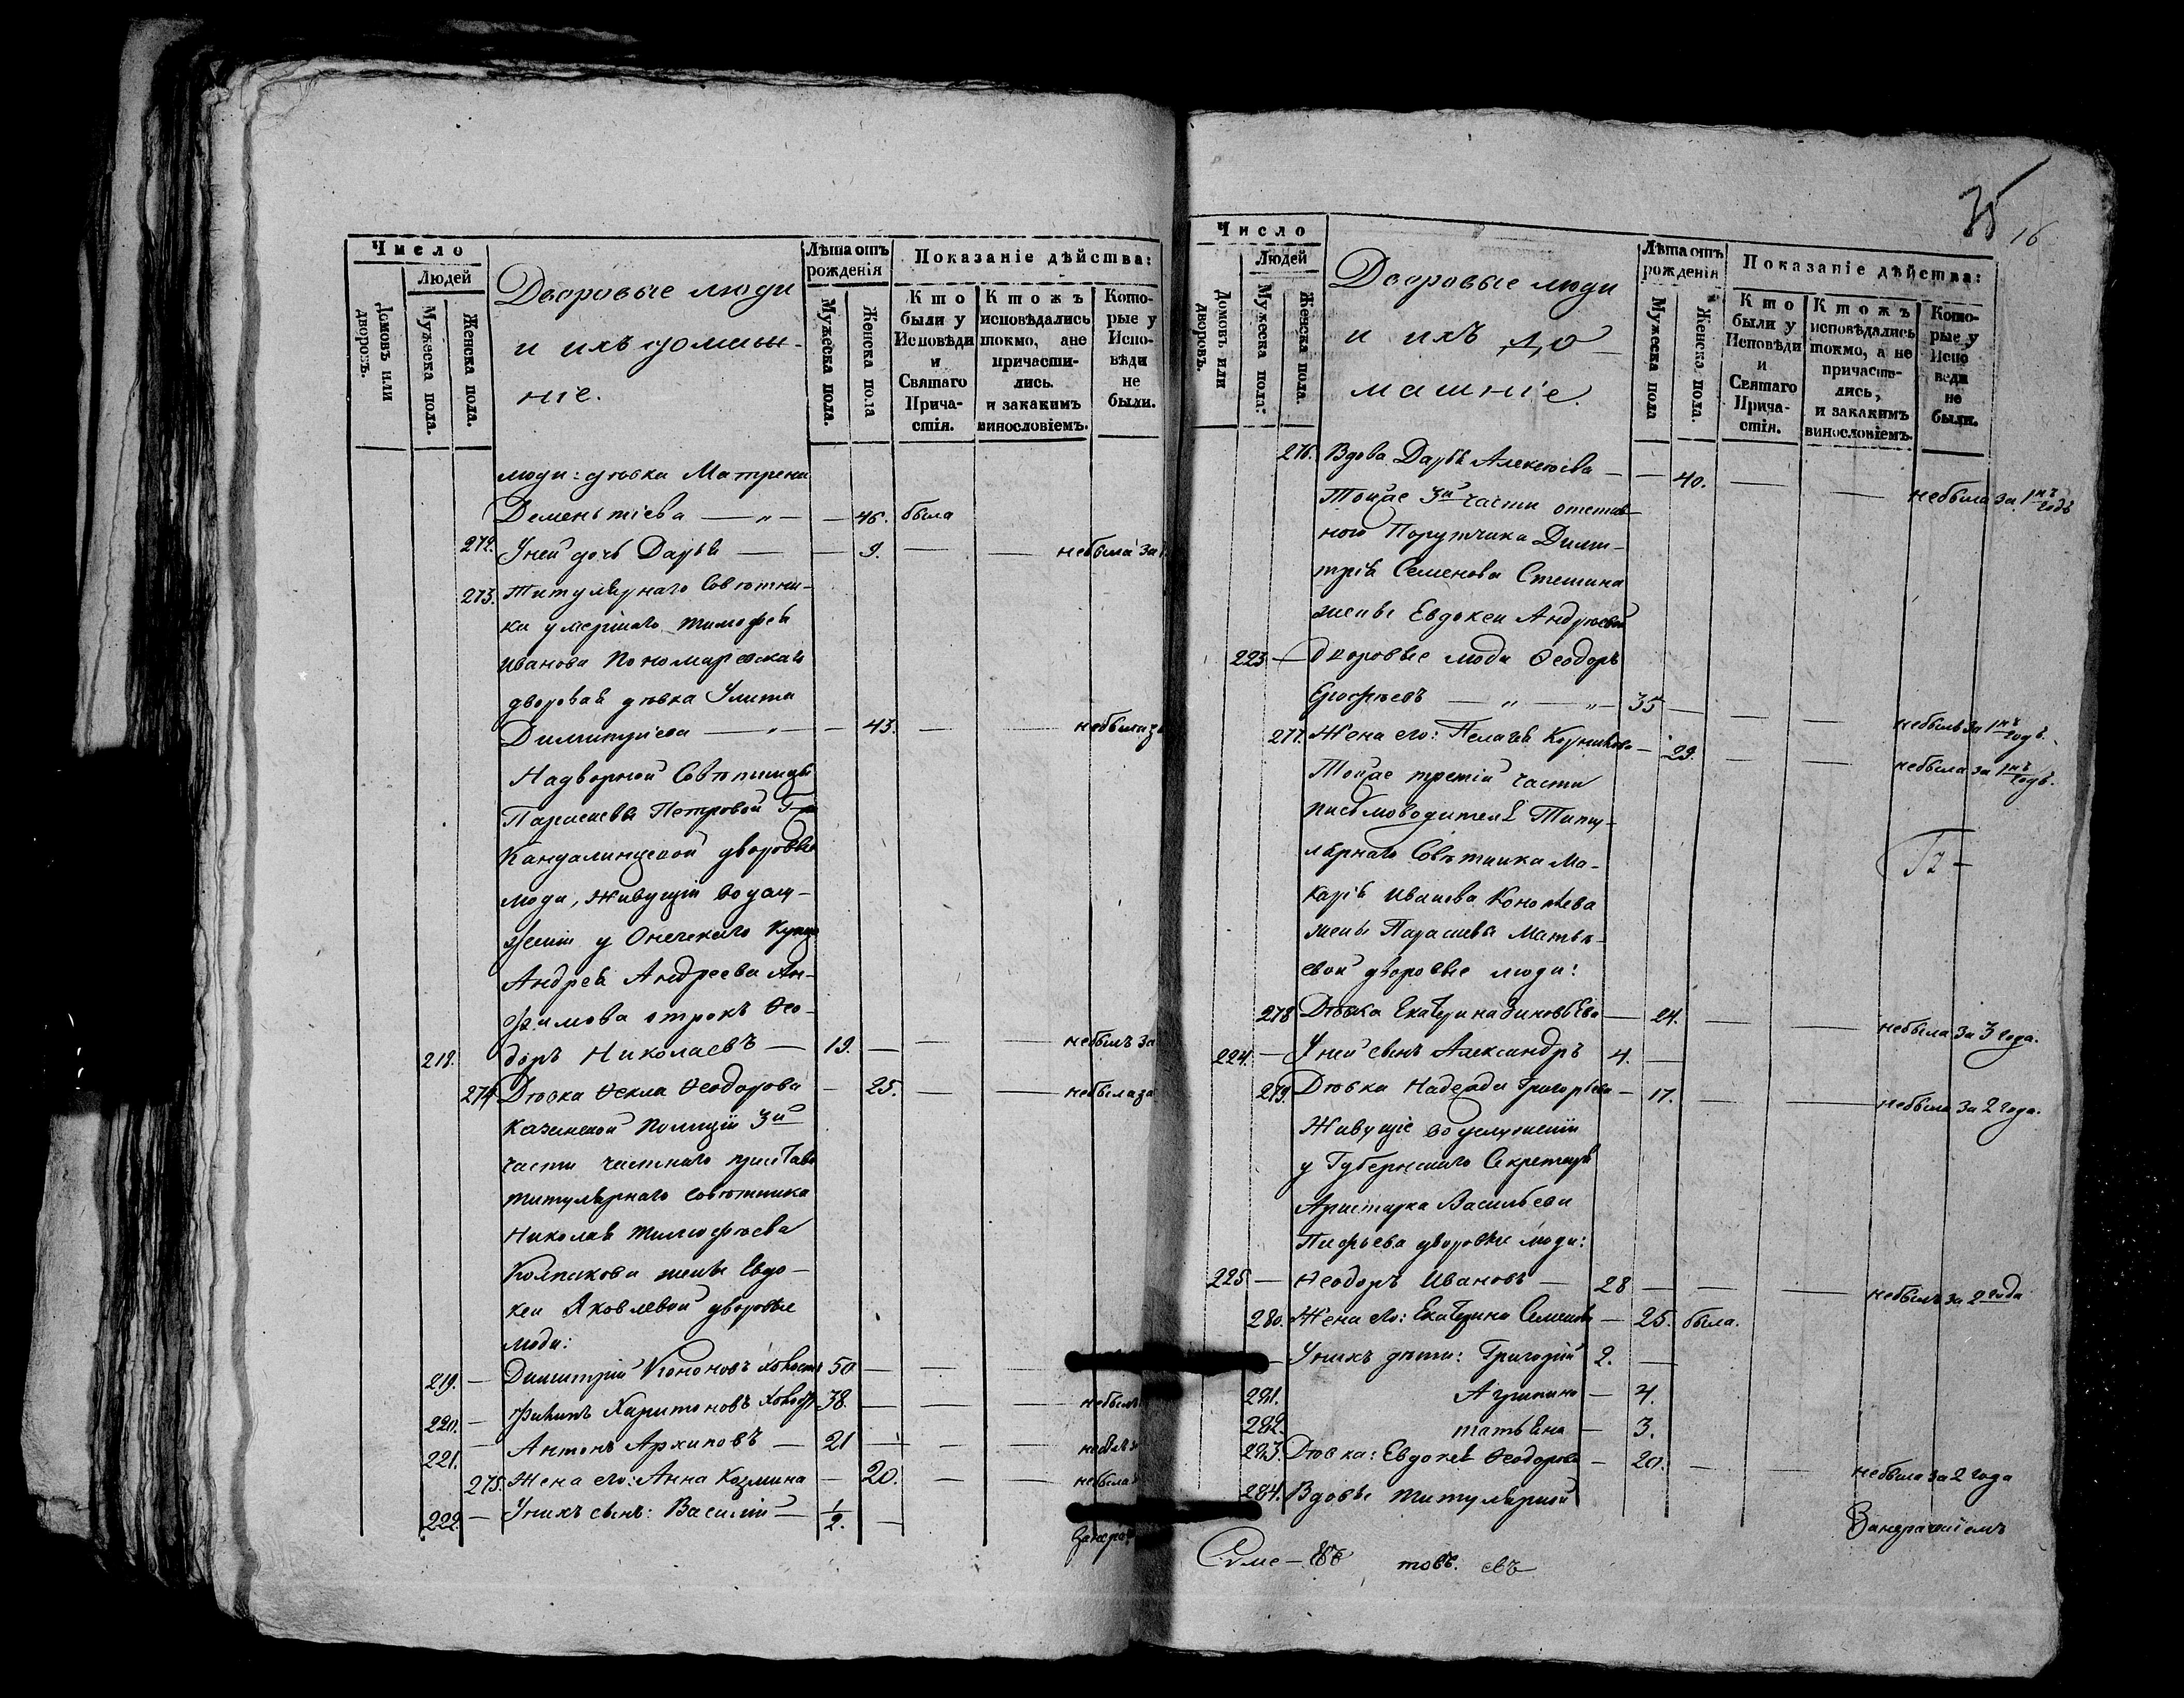 Число
Людей
Домовъ или дворовъ.
Мужеска пола.
Женска пола.
Дворовые люди
и ихъ домаш-
ніе.
Лѣта отъ рожденія
Мужеска пола.
Женска пола
Показаніе дѣйства:
Кто были у Исповѣди и Святаго Прича-стія.
Ктожъ исповѣдались токмо, ане причасти-лись. и закакимъ винословіемъ.
Кото-рые у Испо-вѣди не были.
люди: дѣвка Матрена
Дементіева — „ — — 46. была
272. У ней дочь Дарья — — 9. — — небыла за
273. Титулярнаго Совѣтни-
ка умершаго Тимофея
Иванова Пономаревскаго
дворовая дѣвка Улита
Димитріева — „ — — 43. — — небыла за
Надворной Совѣтницы
Параскевы Петровой
Кандалинцевой дворовые
люди, живущіи во услу-
женіи у Онежскаго Купца
Андрея Андреева Ан-
фимова отрокъ Ѳео-
218. доръ Николаевъ — 19. — — — небылъ за
274. Дѣвка Ѳекла Ѳеодорова — 25. — — небыла за
Казанской Полиціи 3й
части частнаго пристава
титулярнаго совѣтника
Николая Тимофѣева
Колпакова жены Евдо-
кеи Яковлевой дворовые
люди:
219. — Димитрій Кононовъ холостъ 50 — — —
220. — Филипъ Харитоновъ холост 38. — — — небылъ
221. — Антонъ Архиповъ — 21 — — — небылъ за
275. Жена его: Анна Козмина — 20. — — небыла
222. — У нихъ сынъ: Василій — 1/2. —
Число
Людей
Домовъ или дворовъ.
Мужеска пола.
Женска пола.
35
16
Дворовые люди
и ихъ до-
машніе.
Лѣта отъ рожденія
Мужеска пола
Женска пола.
Показаніе дѣйства:
Кто были у Исповѣди и Святаго Прича-стія.
Ктожъ исповѣдались токмо, а не причасти-лись, и закакимъ винословіемъ.
Кото-рые у Испо веди не были.
276. Вдова Дарья Алексѣева — — 40. — — небыла за 1нъ годъ
Тойже 3й части отстав-
ного Порутчика Дими-
трія Семенова Стешина
жены Евдокеи Андреевой
223 — дворовые люди Ѳеодоръ
Ерофѣевъ — „ — „ — 35 — — — небылъ за 1нъ годъ.
277. Жена его: Пелагея Корнилова — 29. — — небыла за 1нъ годъ.
Тойже третій части
писмоводителя Титу-
лярнаго Совѣтника Ма-
карія Иванова Коноплева
жены Парасковьи Матвѣ-
евой дворовые люди:
278 Дѣвка Екатерина Зиновьева — 24. — — небыла за 3 года.
224. — У ней сынъ Александръ 4. —
279. Дѣвка Надежда Григорьева — 17. — — небыла за 2 года.
Живущіе во услуженіи
у Губернскаго Секретаря
Аристарха Васильева
дворовые люди:
225 — Ѳеодоръ Ивановъ — 28 — — — небылъ за 2 года
280. Жена его: Екатерина Семенова — 25. была.
— У нихъ дѣти: Григорій 2. —
281. Агрипина — 4.
282. татьяна — 3.
283. Дѣвка: Евдокея Ѳеодорова — 20. — — небыла за 2 года
284. Вдовы титулярной